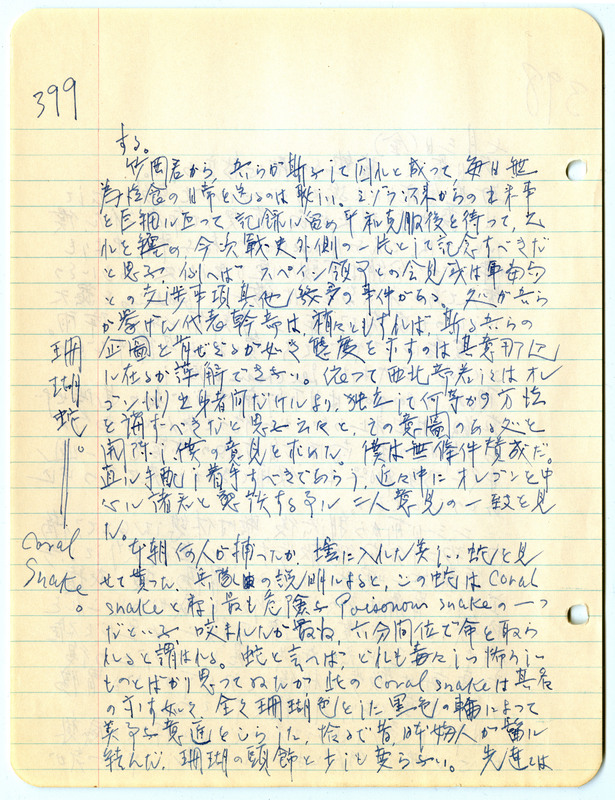 399
する。
竹岡君から、吾らが斯くして囚れと成って、毎日無
為徒食の日常を送るのは歎しい。ミゾラ以来からの出来事
を巨細に亘って、記録に留め平和克服後を待って、之
れを纏め今次戦史外側の一片として記念すべきだ
と思ふ、例へば、スペイン領事との会見或は軍当局
との交渉事項其他幾多の事件がある。が吾ら
が挙げた代表幹部は、稍々ともすれば、斯る吾らの
企圖を肯ぜざるが如き態度を示すのは其意那辺
に在るか諒解できない。依って西北部君としてはオレ
ゴン州出身者間だけにより、独立して何等かの方法
を講すべきだと思ふ云々と、その意圖のある処を
開陳し僕の意見を求めた。僕は無條件賛成だ。
直に手配し着手すべきであらう、近々中にオレゴンを中
心に諸君と懇談する事に二人意見の一致を見
た。
今朝何人か捕ったか、壜に入れた美しい蛇を見
せて貰った、兵隊の説明によると、この蛇は Coral
snake と称し最も危険な Poisonous snake の一つ
だといふ、咬まれたが最后、六分間位で命を取ら
れると謂はれる。蛇と言へば、どれも毒々しい怖ろしい
ものとばかり思ってゐたが此の Coral snake は其名
の示す如く全く珊瑚色とした黒色の輪によって
美事な意匠をこらした、恰るで昔、日本婦人が髷に
結んだ、珊瑚の頭飾と少しも異らない。先達は
珊瑚蛇。
Coral
Snake。